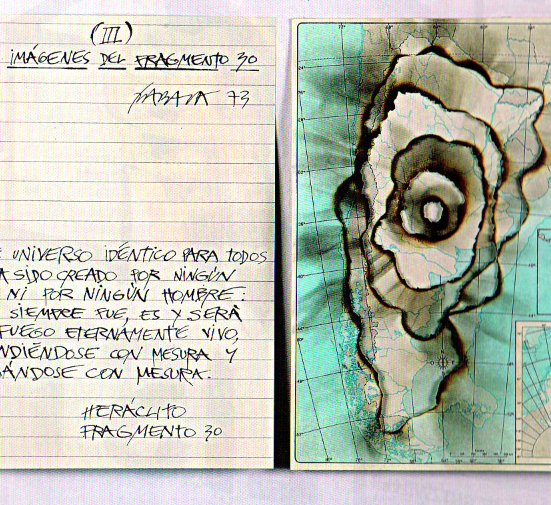 (III)
IMÁGENES DEL FRAGMENTO 30
ZABALA 73
UNIVERSO IDÉNTICO PARA TODOS
SIDO CREADO POR NINGÚN
NI POR NINGÚN HOMBRE:
SIEMPRE FUE, ES Y SERÁ
FUEGO ETERNAMENTE VIVO,
NDIÉNDOSE CON MESURA Y
ÁNDOSE CON MESURA.
HERÁCLITO
FRAGMENTO 30